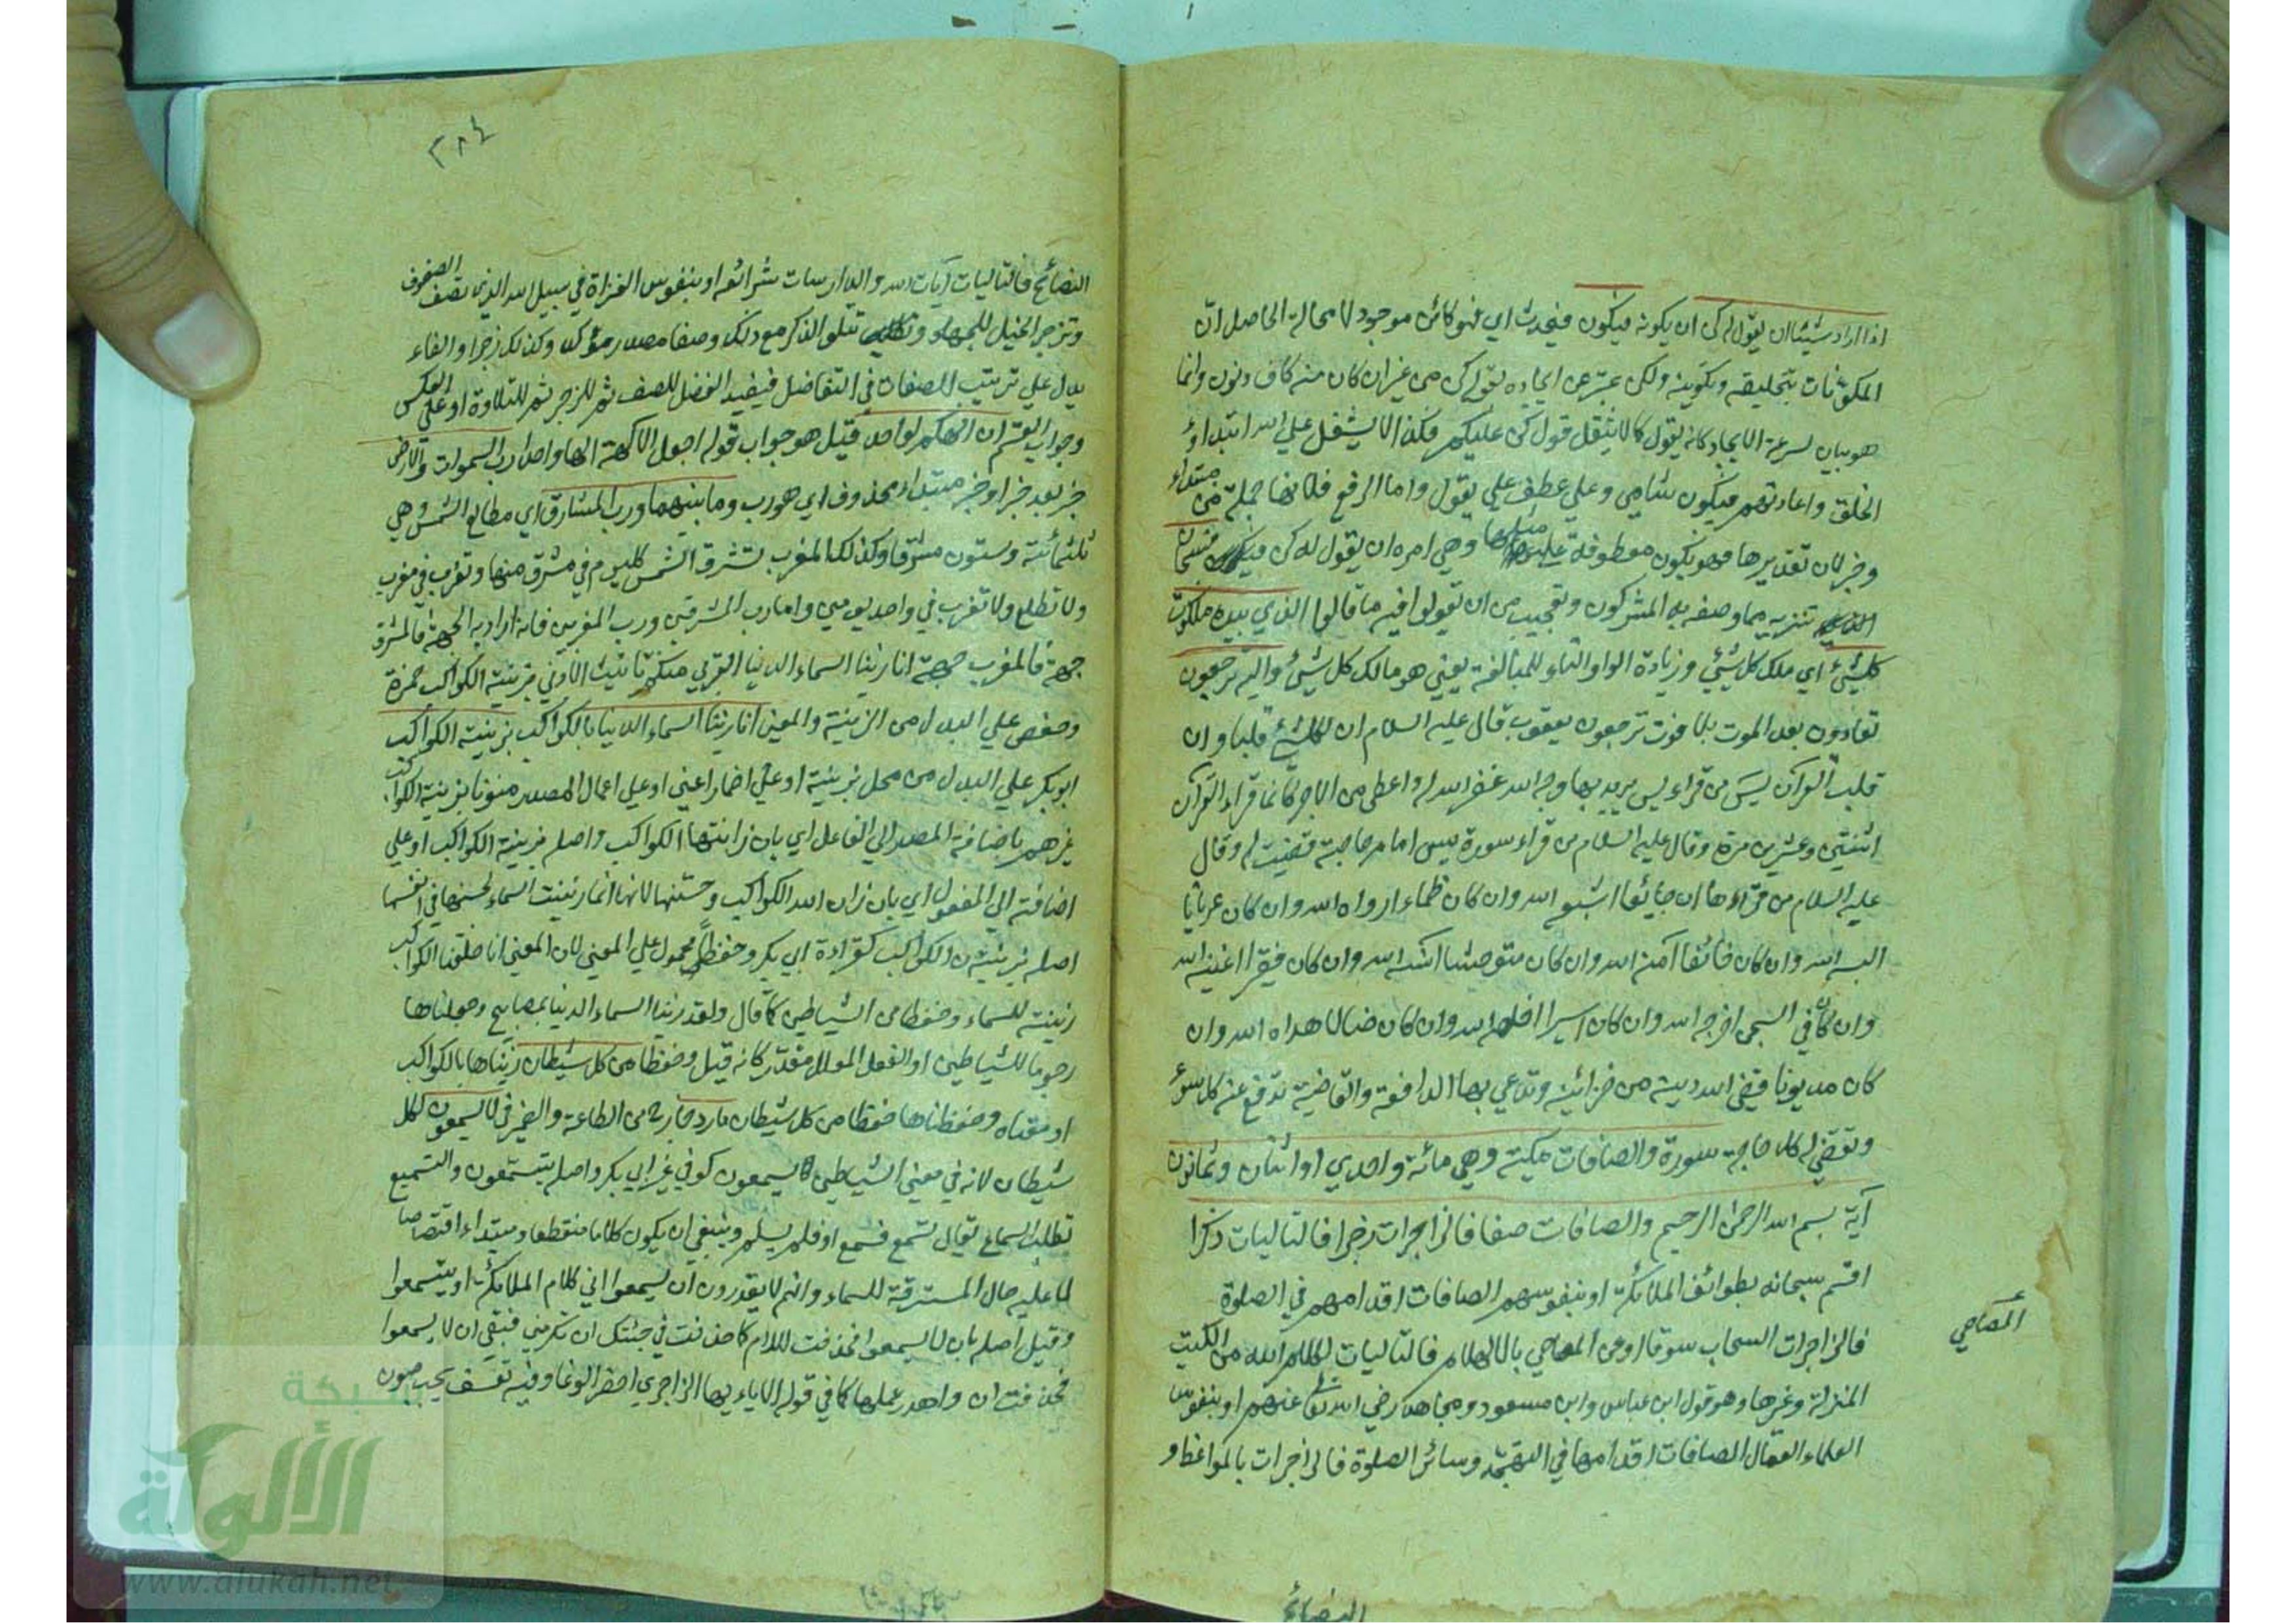 اذا اراد شيئا ان يقول له كن ان يكونه فيكون فيحدث اي فهو كائن موجود لا محالة الحاصل ان
المكونات بتخليقه وتكوينه ولكن عبر عن ايجاده بقوله كن من غير ان كان منه كاف ونون وانما
هو بيان لسرعة الايجاد كانه يقول كما لا يثقل قول كن عليكم فكذا لا يثقل علي الله ابتداء
الخلق واعادتهم فيكون شامي وعلي عطف علي يقول واما الرفع فلانها جملة من مبتداء
وخبر لان تقديرها فهو يكون معطوفة علي مثلها وهي امره ان يقول له كن فيكون فسبحان
الذي تنزيه مما وصفه به المشركون وتعجيب من ان تقولوا فيه ما قالوا الذي بيده ملكوت
كل شيء اي ملك كل شيء وزيادة الواو والتاء للمبالغة يعني هو مالك كل شيء واليه ترجعون
تعادون بعد الموت بلا فوت ترجعون يعقوب قال عليه السلام ان لكل شيء قلبا وان
قلب القرآن يس من قراء يس يريد بها وجه الله غفر الله له واعطي من الاجر كانما قراء القرآن
اثنتين وعشرين مرة وقال عليه السلام من قراء سورة يس امام حاجته قضيت له وقال
عليه السلام من قراءها ان جائعا اشبعه الله وان كان ظماء ارواه الله وان كان عريانا
البسه الله وان كان خائفا آمنه الله وان كان متوحشا انسه الله وان كان فقيرا اغنيه الله
وان كان في السجن اخرجه الله وان كان اسيرا اخلصه الله وان كان ضالا هداه الله وان
كان مديونا قضي الله دينه من خزائنه وتدعي بها الدافعة والقاضية تدفع عنه كل سوء
وتقضي له كل حاجة سورة والصافات مكية وهي مائة واحدي او اثنان وثمانون
آية بسم الله الرحمن الرحيم والصافات صفا فالزاجرات زجرا فالتاليات ذكرا
اقسم سبحانه بطوائف الملائكة او بنفوسهم الصافات اقدامهم في الصلوة
فالزاجرات السحاب سوقا او عن المعاصي بالالهام فالتاليات لكلام الله من الكتب
المعاصي
المنزلة وغيرها وهو قول ابن عباس وابن مسعود ومجاهد رضي الله تعا عنهم او بنفوس
العلماء العمال الصافات اقدامها في التهجد وسائر الصلوة فالزاجرات بالمواعظ و
النصائح
٣٨٤
النصائح فالتاليات آيات الله والدارسات شرائعه او بنفوس الغزاة في سبيل الله الذي تصف الصفوف
وتزجر الخيل للجهاد وتتلو الذكر مع ذلك وصفا مصدر مؤكد وكذلك زجرا والفاء
يدل علي ترتيب الصفات في التفاضل فيفيد الفضل للصف ثم للزجر ثم للتلاوة او علي العكس
وجواب القسم ان الهكم لواحد قيل هو جواب قوله اجعل الآلهة الها واحدا رب السموات والارض
خبر بعد خبر او خبر مبتداء محذوف اي هو رب وما بينهما ورب المشارق اي مطالع الشمس وهي
ثلثمائة وستون مشرقا وكذلك المغرب تشرق الشمس كل يوم في مشرق منها وتغرب في مغرب
ولا تطلع ولا تغرب في واحد يومين واما رب المشرقين ورب المغربين فانه اراد به الجهة فالمشرق
جهة فالمغرب جهة انا زينا السماء الدنيا القربي منكم تانيث الادني بزينة الكواكب حمزة
وحفص علي البدل من الزينة والمعني انا زينا السماء الدنيا بالكواكب بزينة الكواكب
ابو بكر علي البدل من محل بزينة او علي اضمار اعني او علي اعمال المصدر منونا بزينة الكواكب
غيرهم باضافة المصدر الي الفاعل اي بان زانتها الكواكب واصله بزينة الكواكب او علي
اضافته الي المفعول اي بان زان الله الكواكب وحسنها لانها انما زينت السماء لحسنها في انفسها
اصله بزينة ن الكواكب كقراءة ابي بكر وحفظا محمول علي المعني لان المعني انا خلقنا الكواكب
زينة للسماء وحفظا من الشياطين كما قال ولقد زينا السماء الدنيا بمصابيح وجعلناها
رجوما للشياطين او الفعل المعلل مقدر كانه قيل وحفظا من كل شيطان زيناها بالكواكب
او معناه وحفظناها حفظا من كل شيطان مارد خارج من الطاعة والضمير في لا يسمعون لكل
شيطان لانه في معني الشياطين لا يسمعون كوفي غير ابي بكر واصله يتسمعون والتسميع
تطلب السماع يقال تسمع فسمع او فلم يسلم وينبغي ان يكون كلاما منقطعا ومبتداء اقتصاصا
لما عليه حال المسترقة للسماء وانهم لا يقدرون ان يسمعوا الي كلام الملائكة او يتسمعوا
وقيل اصله بان لا يسمعوا فحذفت اللام كما حذفت في جئتك ان تكرمني فبقي ان لا يسمعوا
فحذفت ان واهدر عملها كما في قوله الا ياءيها الزاجري احضر الوغا وفيه تعسف يجب صون
شبكة
الألوكة
www.alukah.net